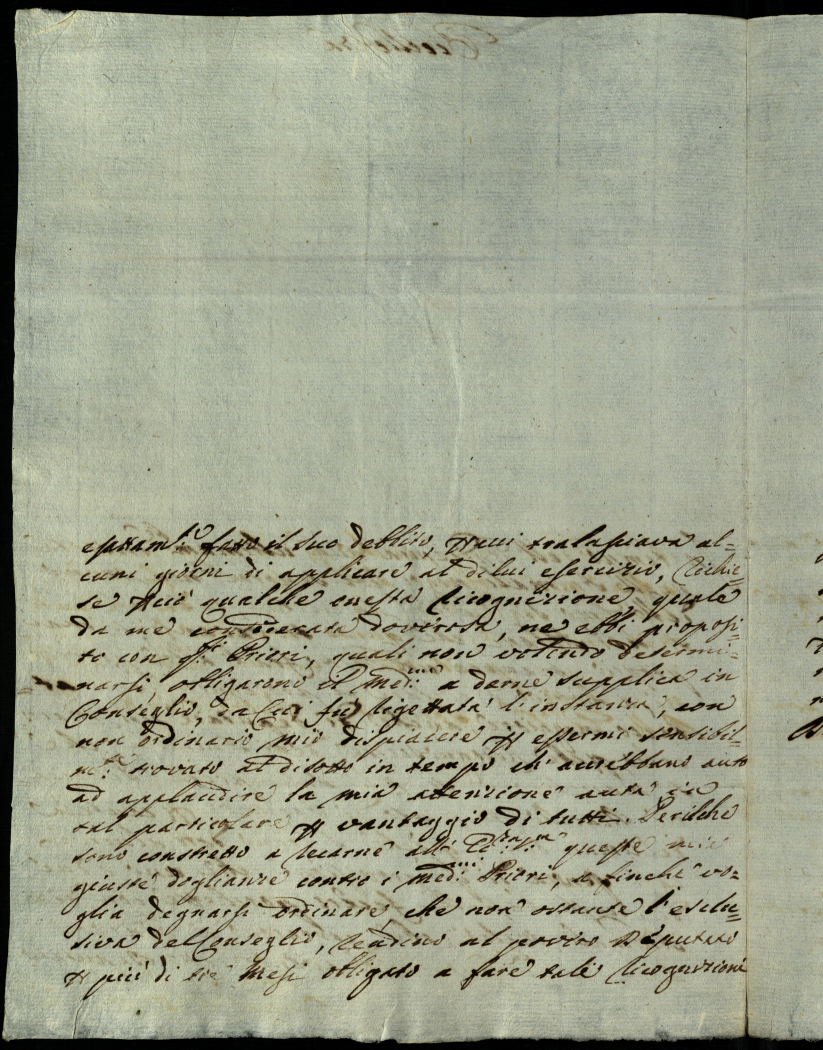 esattam.te fatto il suo debbito, p cui tralasciava al=
cuni giorni di applicare al di lui esercizio, richie=
se p ciò qualche onesta ricognizione, quale
da me considerata doverosa, ne ebbi proposi=
to con q.ti Priori, quali non volendo determi=
narsi, obligarono il med.mo a darne supplica in
Conseglio, da cui fù rigettata l'instanza, con
non ordinario mio dispiacere p essermi sensibil=
m.te trovato al disotto in tempo ch' avrebbano auto
ad applaudire la mia attenzione auta in
tal particolare p vantaggio di tutti. Perilche
sono constretto a recarne all' queste mie
giuste doglianze contro i med.mi Priori, a finche vo=
glia degnarsi ordinare, che non ostante l'esclu=
siva del Conseglio, rendino al povero Deputato
p più di trè mesi obligato a fare tale ricognizione